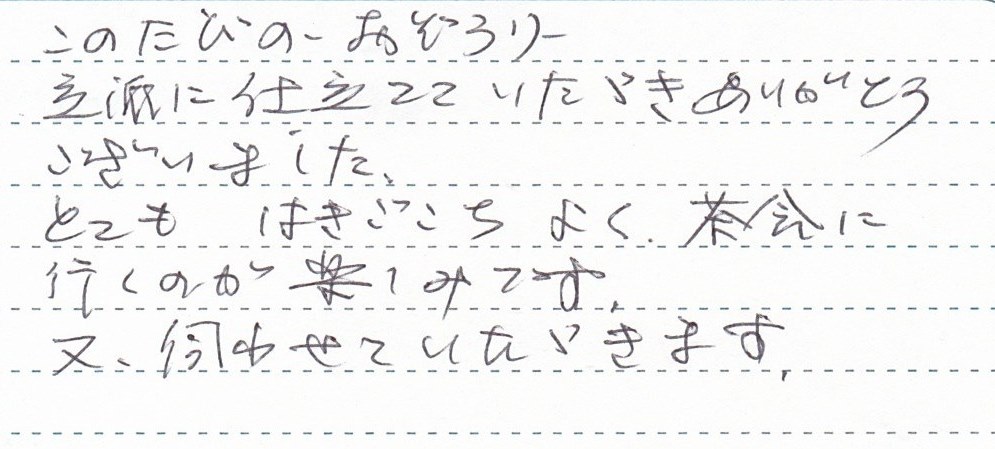 このたびの-おぞうり-
立派に仕立てていただきありがとう
ございました、
とても はきごこち よく、茶会に
行くのが楽しみです。
又、伺わせていただきます。